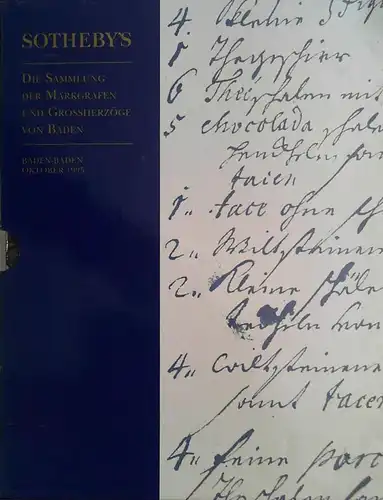 SOTHEBY'S
DIE SAMMLUNG
DER MARKGRAFEN
UND GROSSHERZÖGE
VON BADEN
BADEN-BADEN
OKTOBER 1995
4 Kleine
1 Theegeschier
6 Theeschalen mit
5 chocolada schale
taien
1" tace ohne
2"
2" Kleine schäle
4"
sambt tacen
4" feine porc